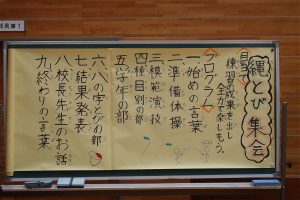 縄とび集会
めあて
練習の成果を出し
全力で楽しもう。
プログラム
一、始めの言葉
二、準備体操
三、模範演技
四、種目別の部
五、学年の部
六、八の字とびの部
七、結果発表
八、校長先生のお話
九、終わりの言葉